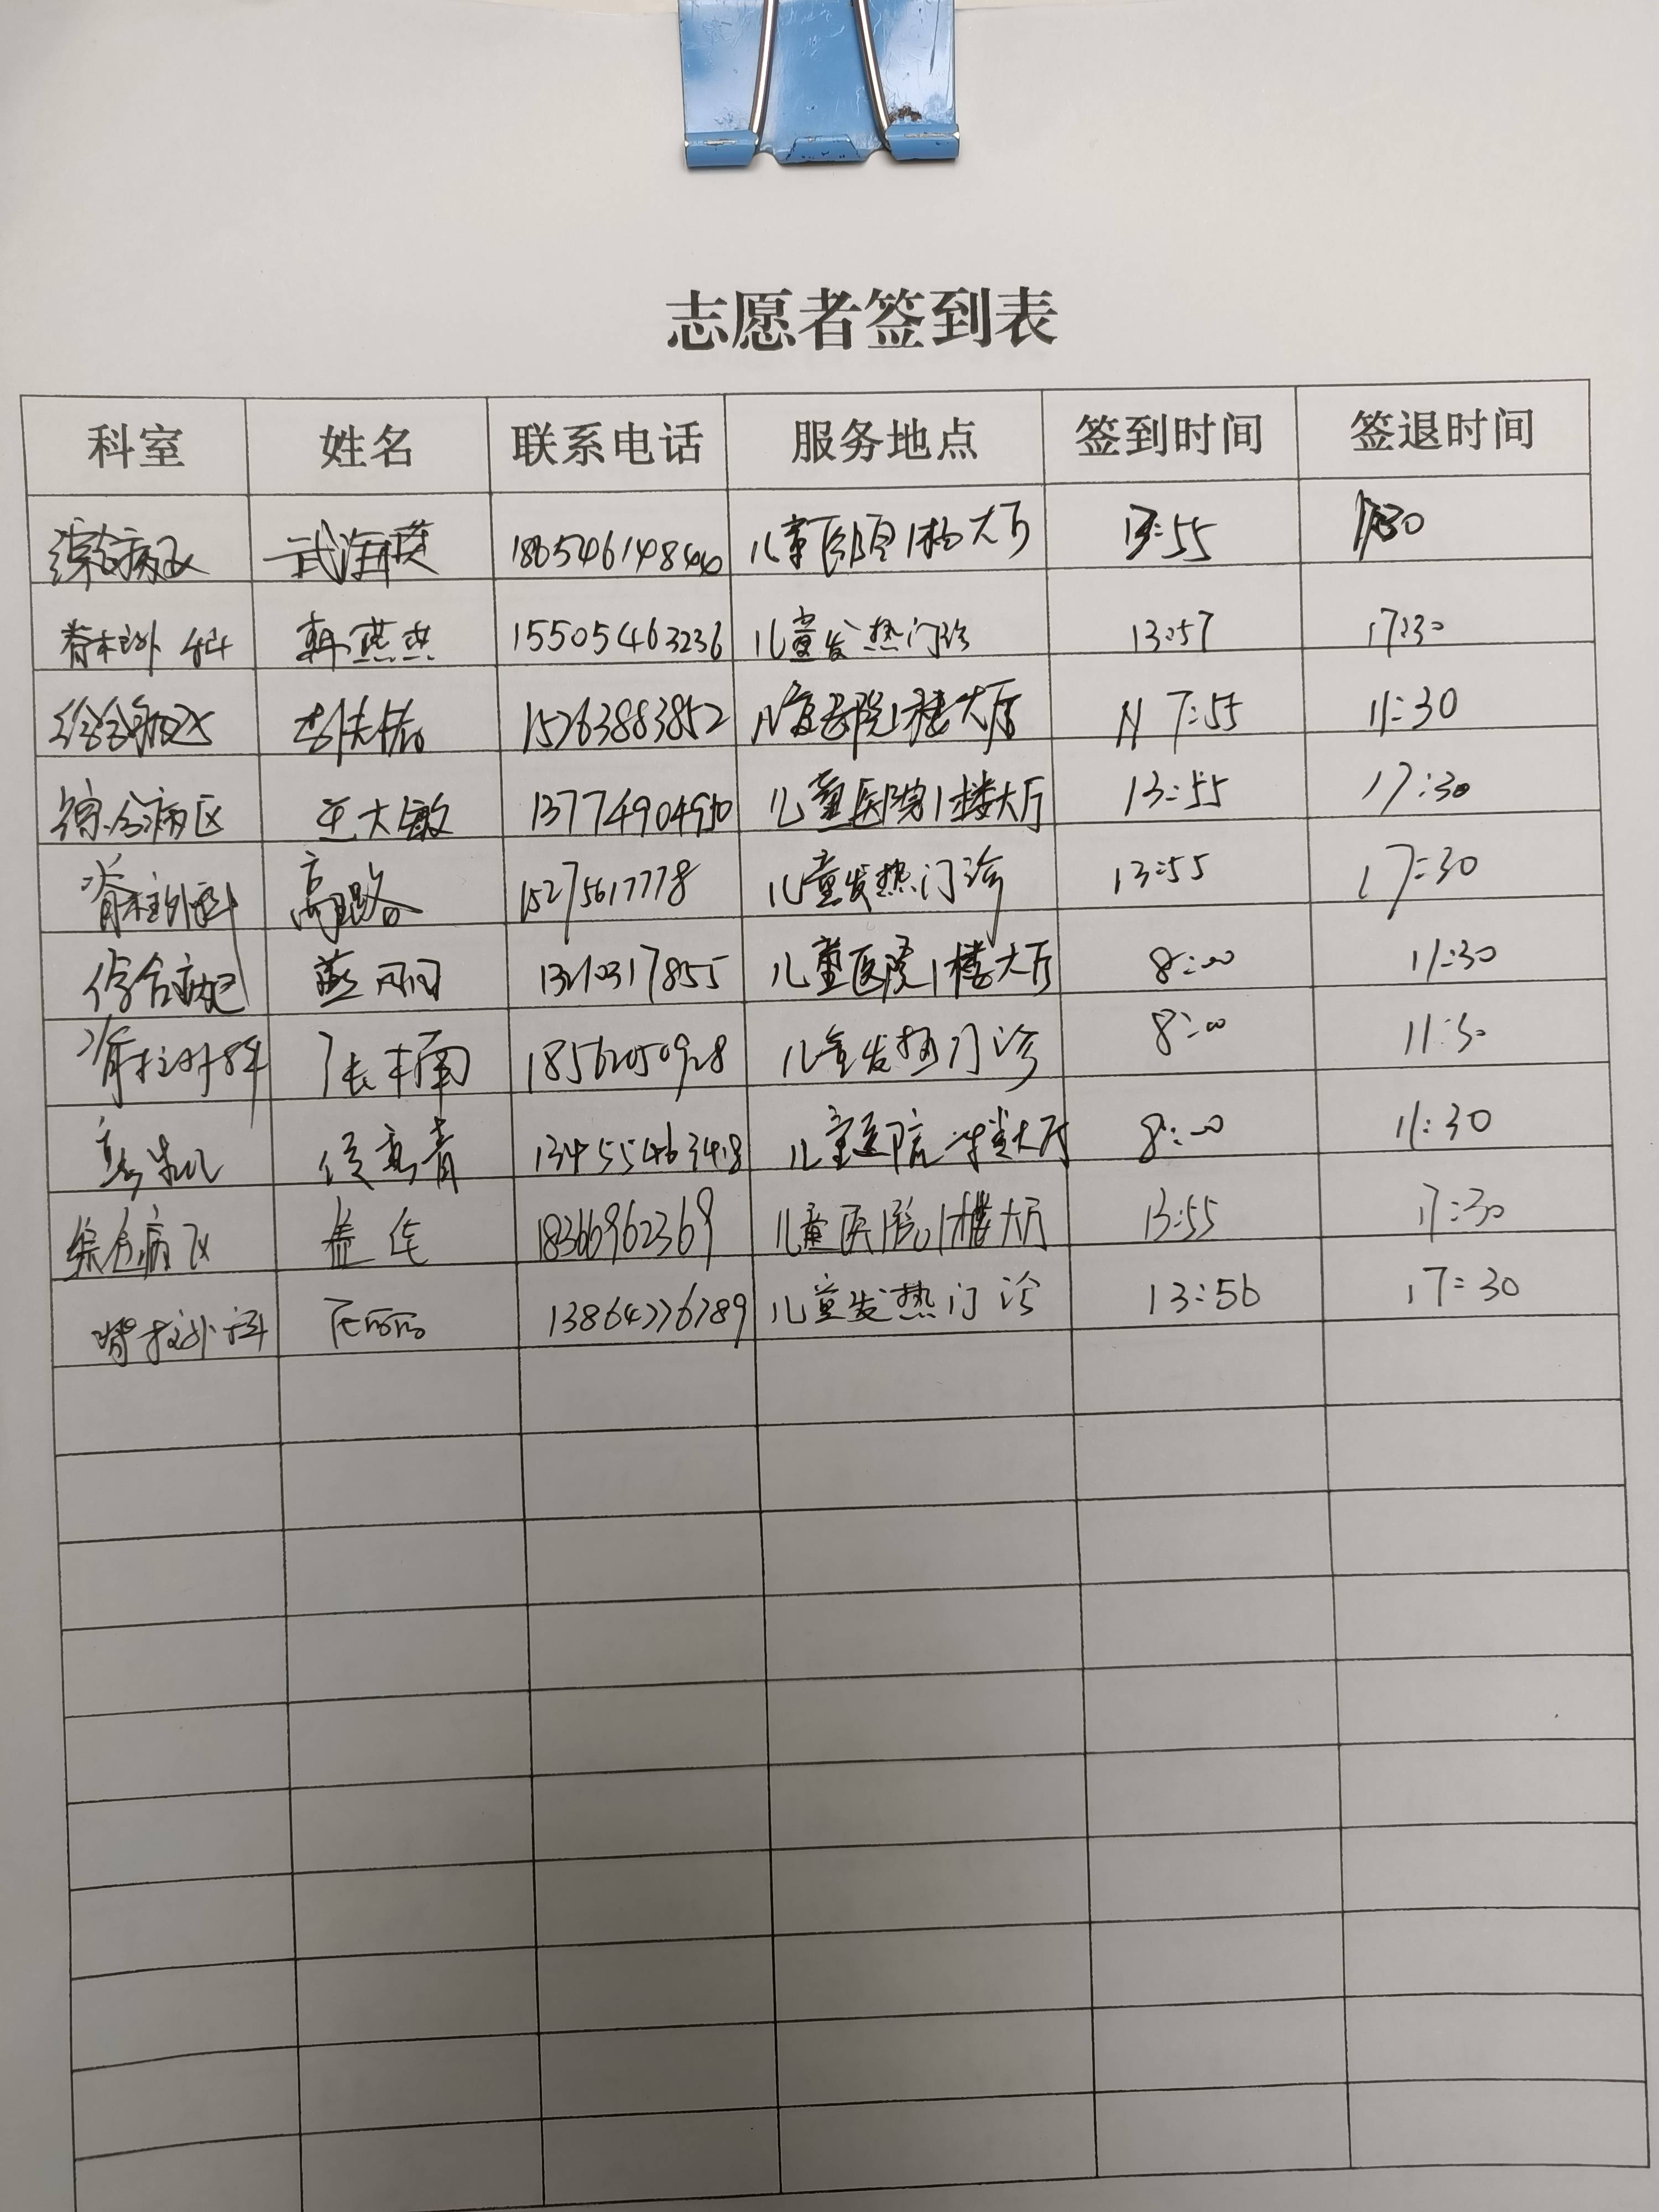 志愿者签到表
科室 姓名 联系电话 服务地点 签到时间 签退时间
综合病区 武海英 儿童医院1楼大厅 13:55
脊柱外科 韩燕燕 15505463236 儿童发热门诊 13:57 17:30
综合病区 15263883852 儿童医院1楼大厅 7:55 11:30
综合病区 王大敏 儿童医院1楼大厅 13:55 17:30
脊柱外科 高璐 15275617778 儿童发热门诊 13:55 17:30
综合病区 燕丽丽 儿童医院1楼大厅 8:00 11:30
脊柱外科 张楠 18562050928 儿童发热门诊 8:00 11:30
侯志青 13455463418 儿童医院一楼大厅 8:00 11:30
综合病区 18366962369 儿童医院1楼大厅 13:55 17:30
脊柱外科 13864776789 儿童发热门诊 13:56 17:30